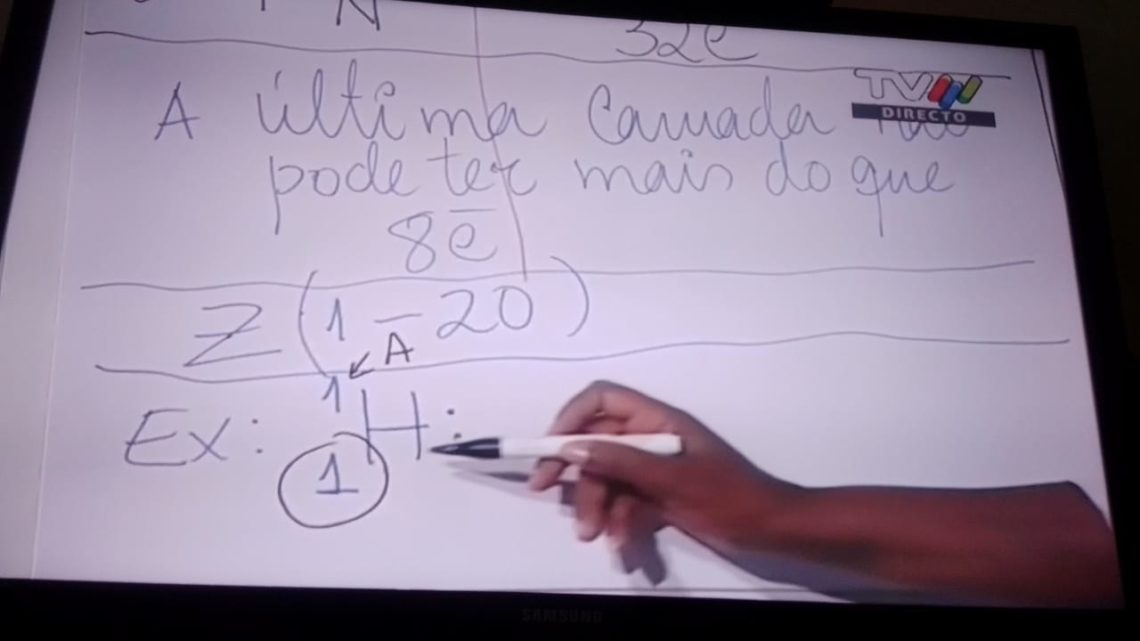 N 32e
A última Camada não
TVM
DIRECTO
pode ter mais do que
8e̅
Z (1 – 20)
A
Ex: 1 H:
1
SAMSUNG